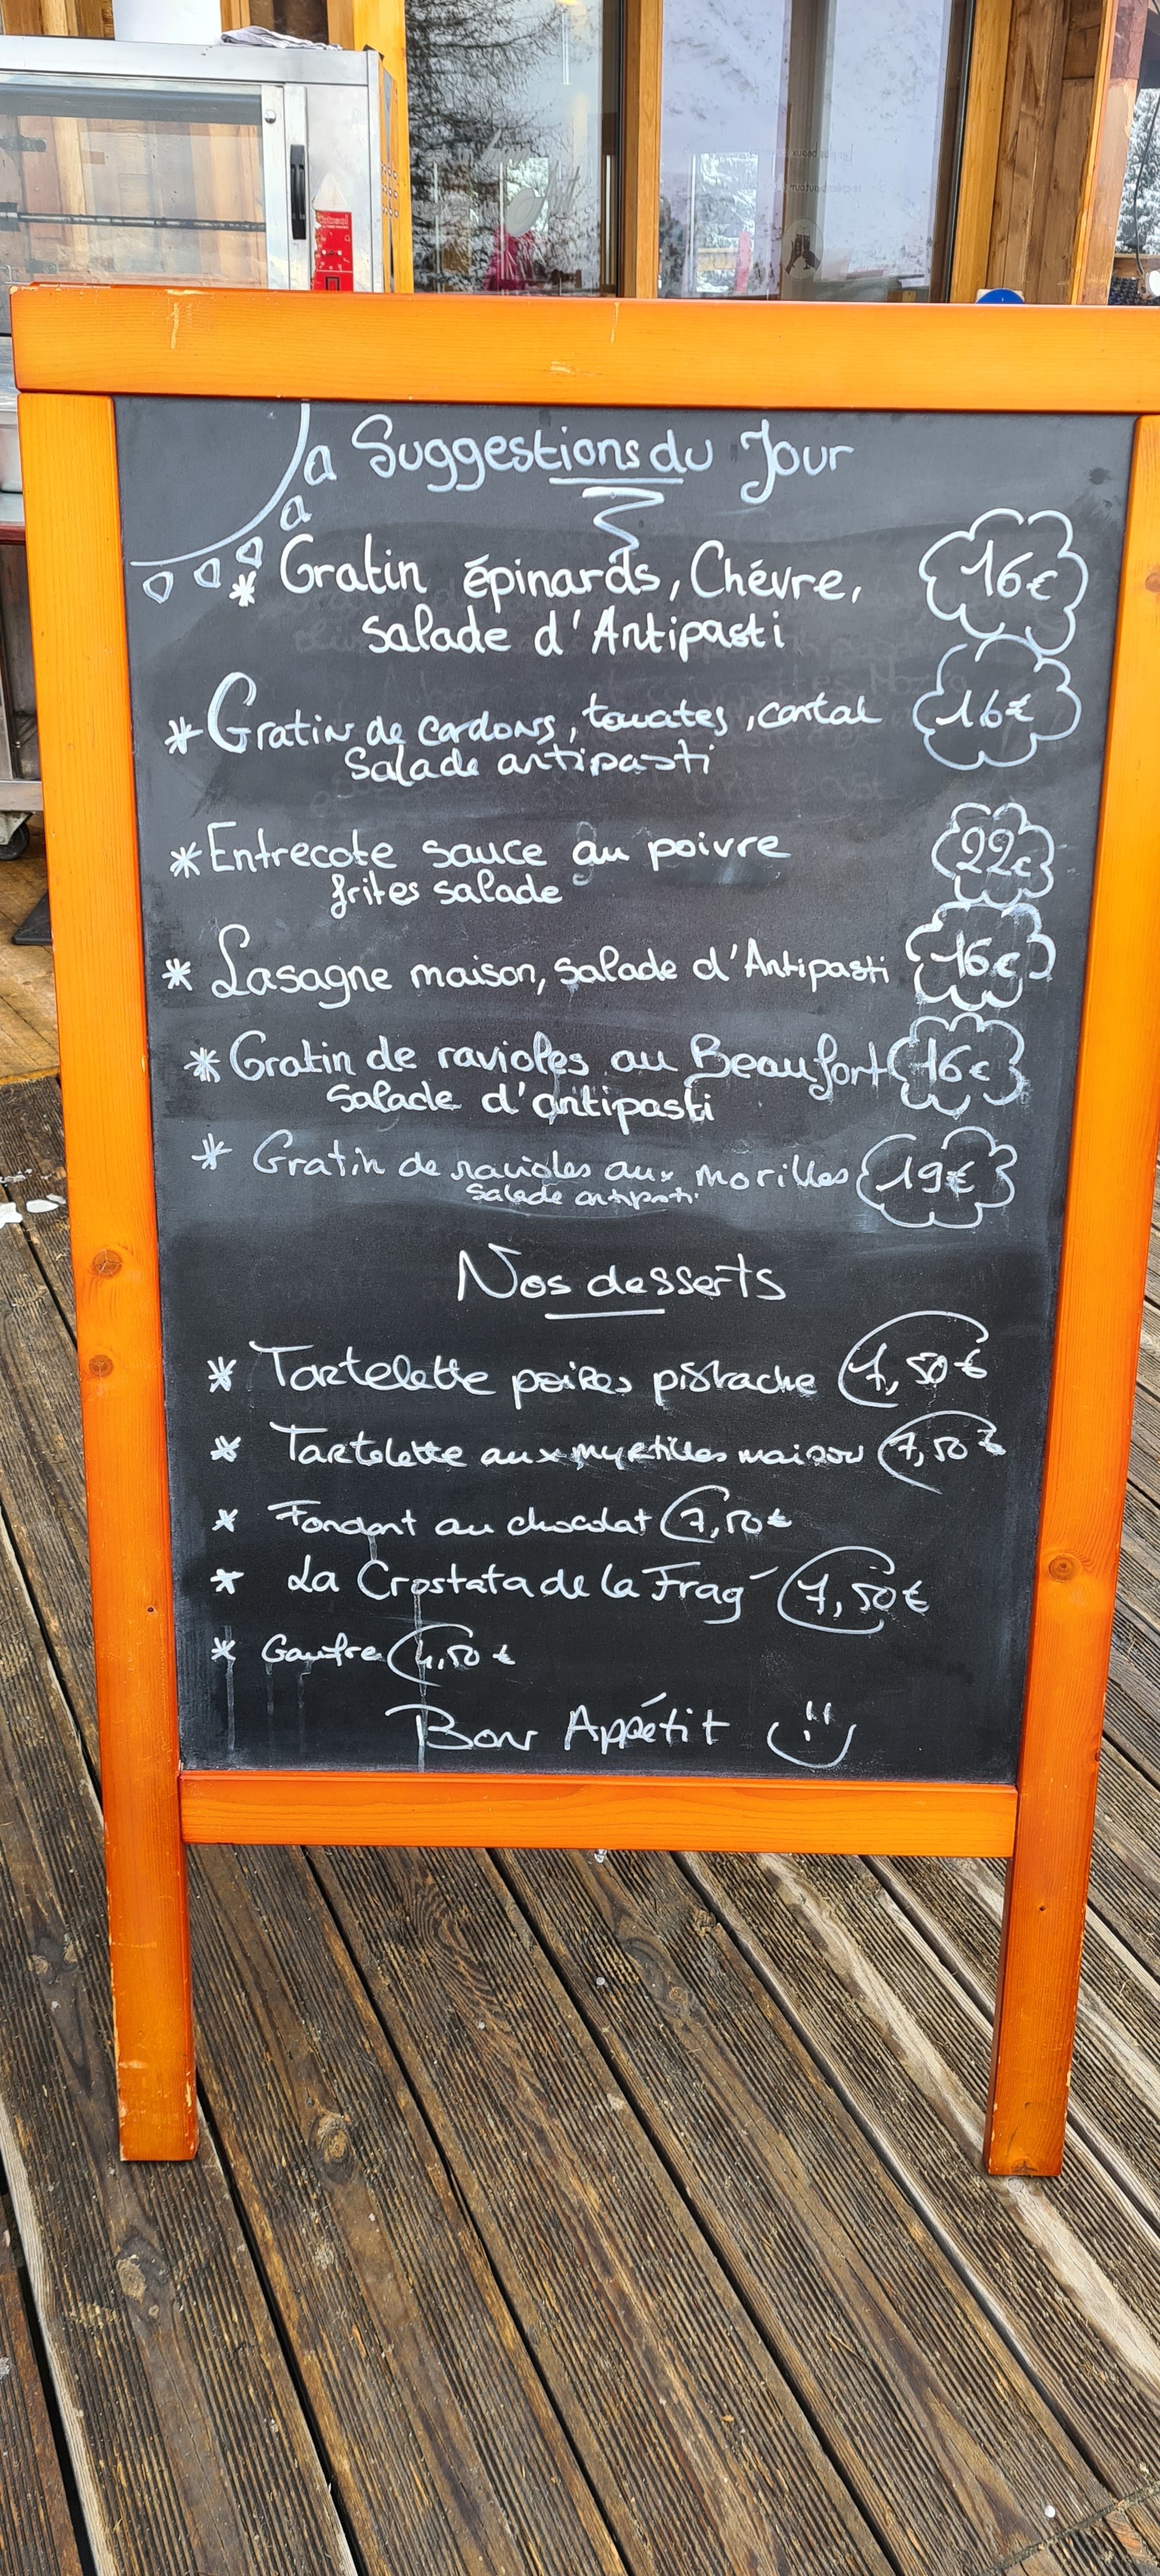 Suggestions du Jour
* Gratin épinards, Chévre, 16€
salade d'Antipasti
* Gratin de cardons, tomates, cantal 16€
Salade antipasti
* Entrecote sauce au poivre 22€
frites salade
* Lasagne maison, salade d'Antipasti 16€
* Gratin de ravioles au Beaufort 16€
Salade d'antipasti
* Gratin de ravioles aux morilles 19€
Salade antipasti
Nos desserts
* Tartelette poires pistache 7,50€
* Tartelette aux myrtilles maison 7,50€
* Fondant au chocolat 7,50€
* La Crostata de la Frag 7,50€
* Gaufre 4,50€
Bon Appétit